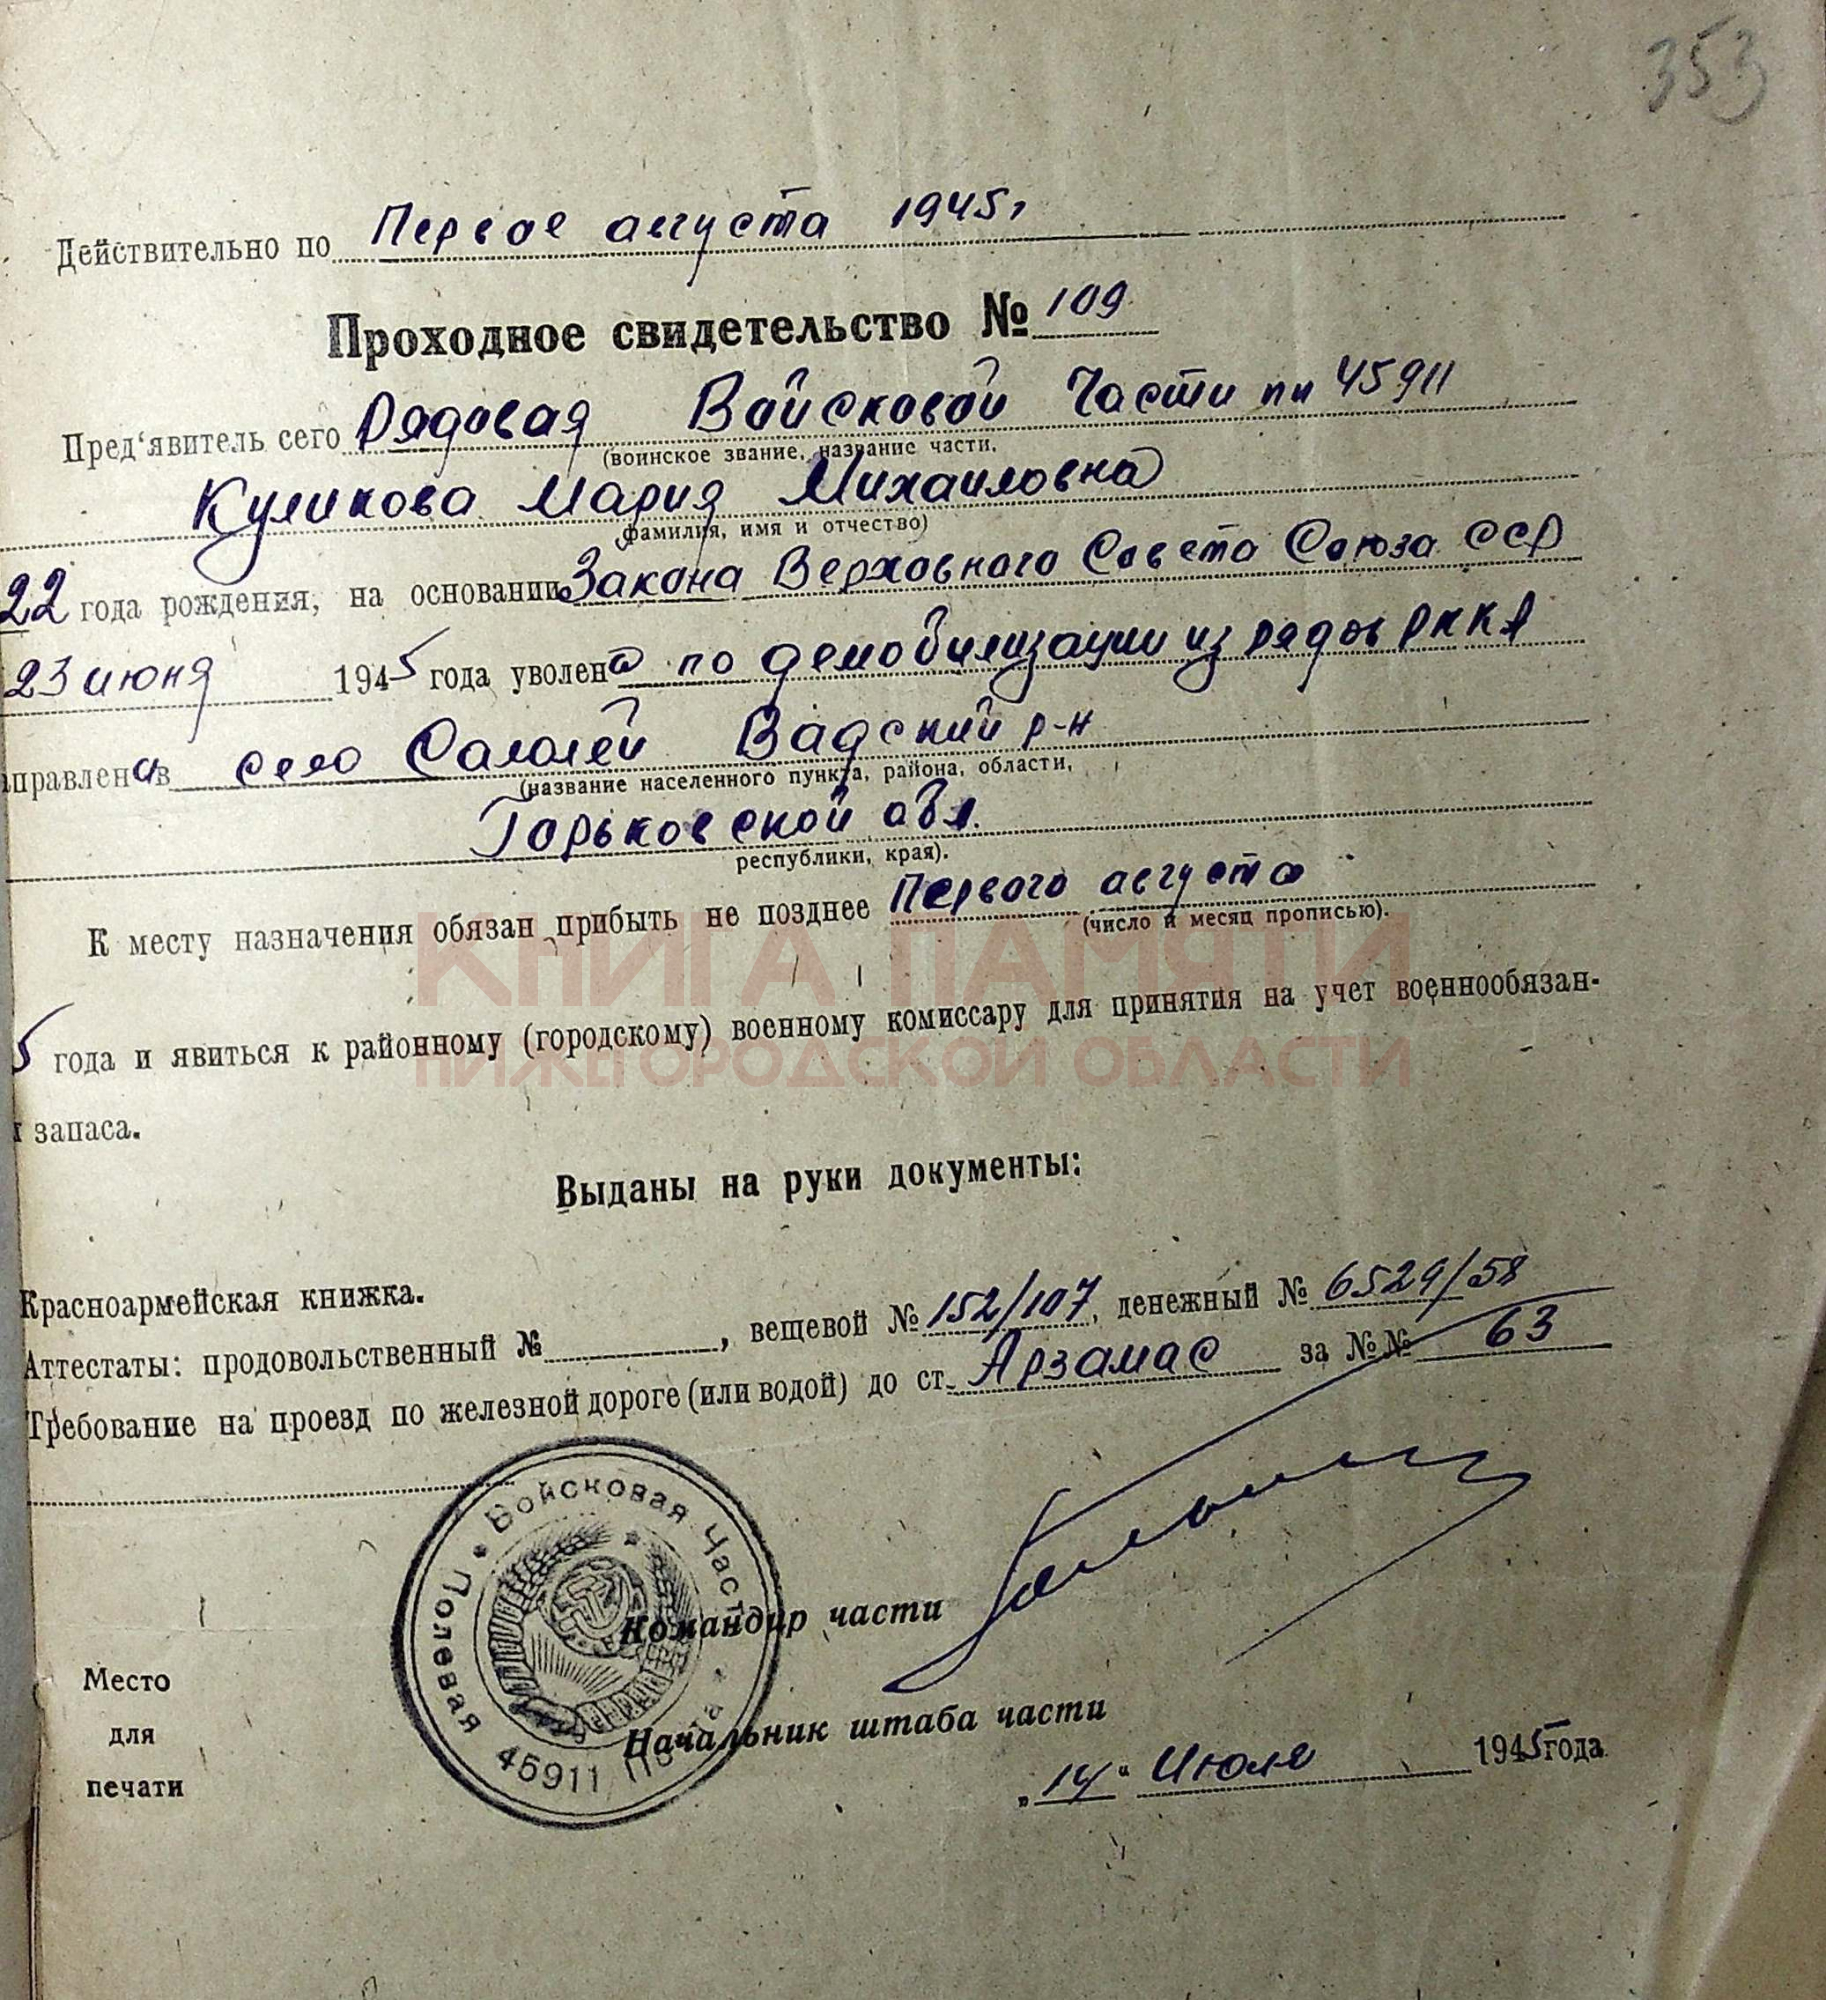 353
Действительно по Первое августа 1945г
Проходное свидетельство № 109
Пред'явитель сего Рядовая Войсковой Части пп 45911
(воинское звание, название части,
Куликова Мария Михаиловна
фамилия, имя и отчество)
22 года рождения, на основании Закона Верховного Совета Союза ССР
23 июня 1945 года уволена по демобилизации из рядов РККА
аправлена в село Салалей Вадский р-н
(название населенного пункта, района, области,
Горьковской обл.
республики, края).
К месту назначения обязан прибыть не позднее Первого августа
(число и месяц прописью).
КНИГА ПАМЯТИ
5 года и явиться к районному (городскому) военному комиссару для принятия на учет военнообязан-
НИЖЕГОРОДСКОЙ ОБЛАСТИ
запаса.
Выданы на руки документы:
Красноармейская книжка.
Аттестаты: продовольственный №, вещевой № 152/107, денежный № 6529/58
Требование на проезд по железной дороге (или водой) до ст. Арзамас за №№ 63
Войсковая Часть Полевая Почта 45911
Командир части
Место
для
печати
Начальник штаба части
„14" Июля 1945 года